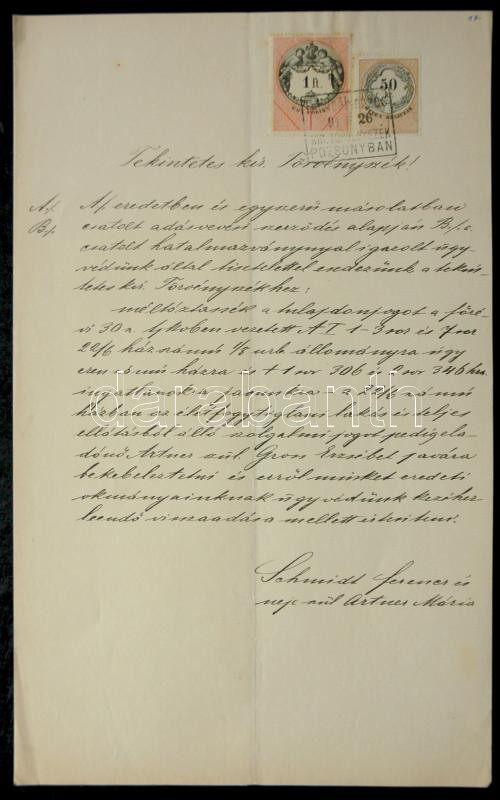 1 ft.
50
26
POZSONYBAN
Tekintetes kir. Törvényszék!
A/. A/. eredetben és egyszerű másolatban
B/. csatolt adásvevési szerződés alapján B/. a.
csatolt hatalmazványnyal igazolt ügy-
védünk által tisztelettel esdezünk a tekin-
tetes kir. Törvényszékhez:
méltóztassék a tulajdonjogot a
30 a. tjkvben vezetett A I 1-3 sor és 7 sor
22/6 házszámú 1/8 urb. állományra úgy
ezen számú házra és + 1 sor 306 és 2 sor 346 hrs.
ingatlanokra javunkra - a 22/6 számú
házban az élethossziglani lakás és teljes
ellátásból álló szolgalmi jogot pedig ela-
dónő Artner szül. Gross Erzsébet javára
bekebeleztetni és erről minket eredeti
okmányainknak ügyvédünk kezéhez
leendő visszaadása mellett értesíteni.
Schmidt Ferencz és
neje szül Artner Mária
darabanth